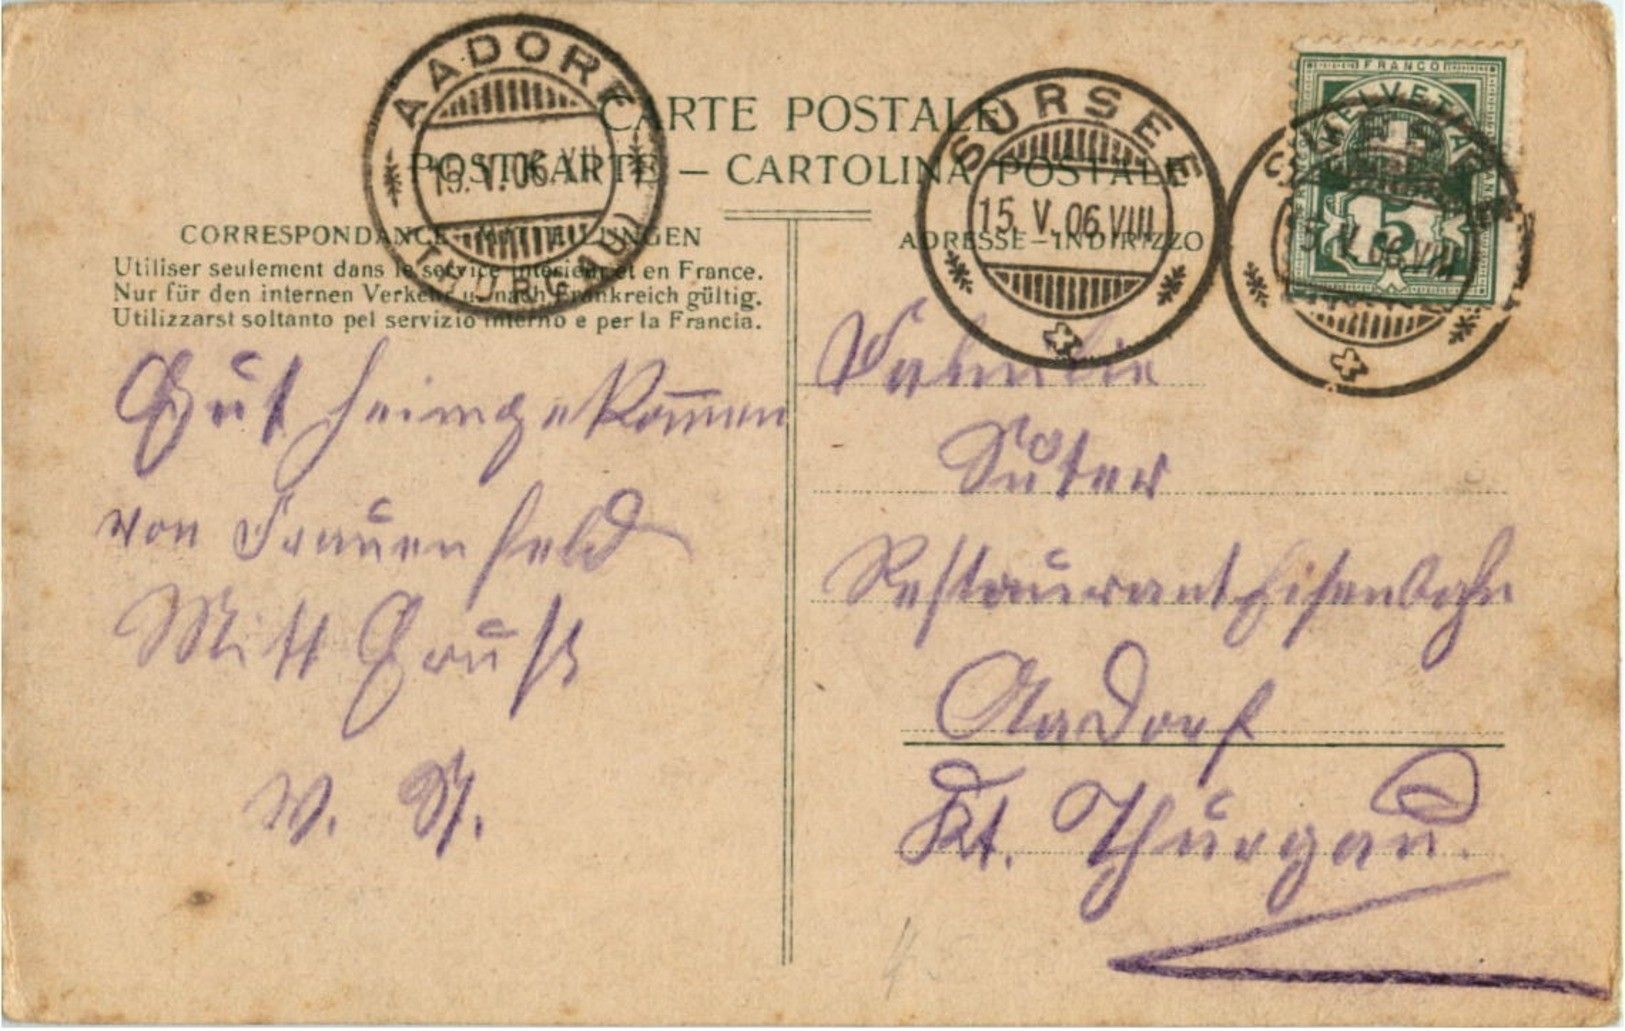 CARTE POSTALE
POSTKARTE – CARTOLINA POSTALE
AADORF
15.V.06.VII
(THURGAU)
SURSEE
15.V.06.VIII
FRANCO
HELVETIA
5
15.V.06.VIII
CORRESPONDANCE – MITTEILUNGEN
Utiliser seulement dans le service intérieur et en France.
Nur für den internen Verkehr u. nach Frankreich gültig.
Utilizzarsi soltanto pel servizio interno e per la Francia.
Gut heimgekom̄en
von Frauenfeld
Mitt Gruß
ADRESSE – INDIRIZZO
Familie
Suter
Restaurant Eisenbahn
Aadorf
Kt. Thurgau.